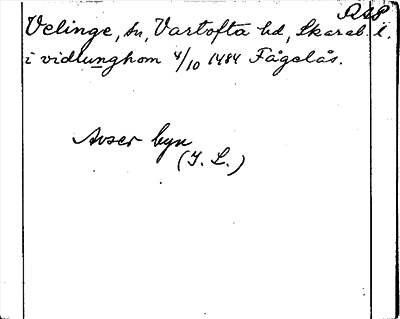 A48
Velinge, sn, Vartofta hd, Skarab. l.
i vidlunghom 4/10 1484 Fågelås.
Avser byn
(I. L.)